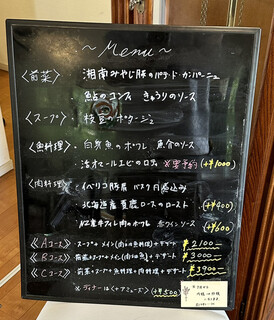 ～Menu～
〈前菜〉 湘南みやじ豚のパテ・ド・カンパーニュ
鮎のコンフィ きゅうりのソース
〈スープ〉 枝豆のポタージュ
〈魚料理〉 白身魚のポワレ 魚介のソース
活オマールエビのロティ ※要予約 (+¥1000)
〈肉料理〉 イベリコ豚肩 バスク風煮込み
北海道産 蝦夷鹿ロースのロースト (+¥400)
NZ産牛フィレ肉のポワレ 赤ワインソース (+¥600)
《Aコース》 スープ+メイン(肉or魚料理)+デザート ¥2100-
《Bコース》 前菜+スープ+メイン(肉or魚)+デザート ¥3000-
《Cコース》 前菜+スープ+魚料理+肉料理+デザート ¥3900-
※ディナーは(+アミューズ) (+¥500)